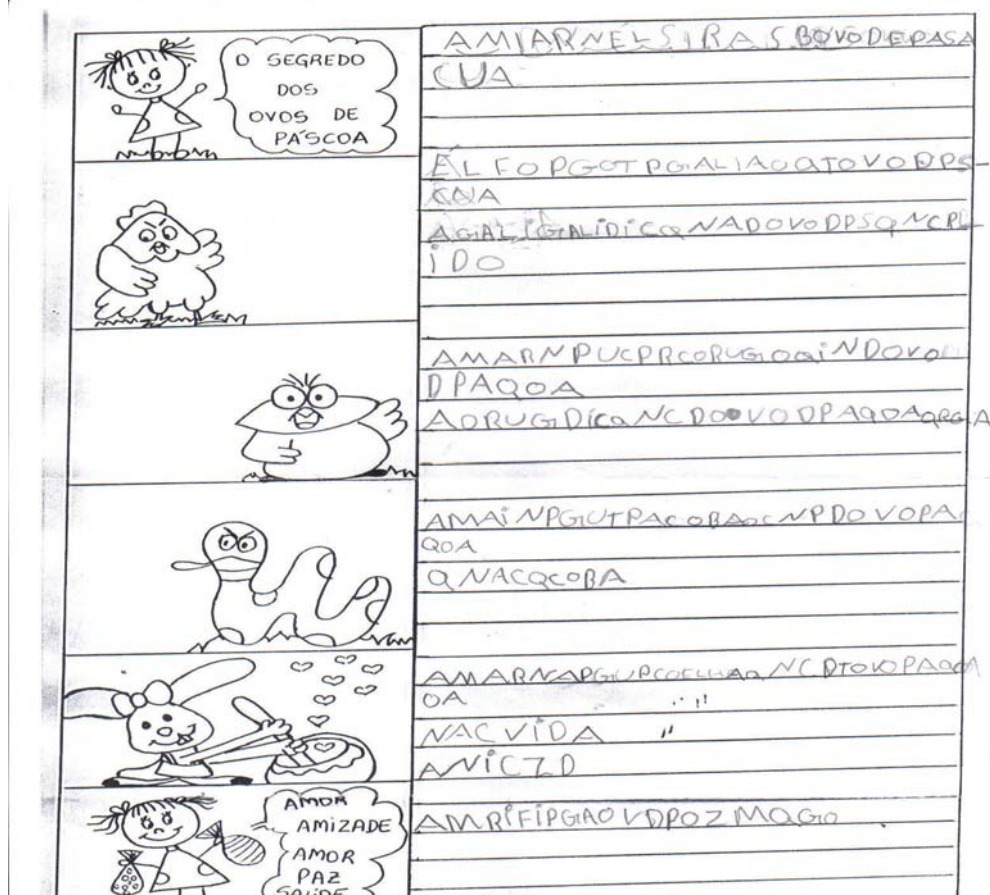 O SEGREDO
DOS
OVOS DE
PÁSCOA
AMIARNÉLSIRAS BOVODEPASA
CUA
ELFOPGOTPGALIAOQTOVODPS-
CUA
AGALIGALIDICQNADOVODPSQNCPL-
IDO
AMARNPUCPRCORUGOQINDOVO
DPAQOA
AORUGDICQNCDOOVODPAQOAQRGIA
AMAINPGUTPACOBAOCNPDOVOPA
QOA
QNACQCOBA
AMARNAPGUPCOELHAQNCDTOVOPAQOA
OA
NACVIDA
ANICZD
AMOR
AMIZADE
AMOR
PAZ
SAÚDE
AMRIFIPGAOVDPOZMAGO